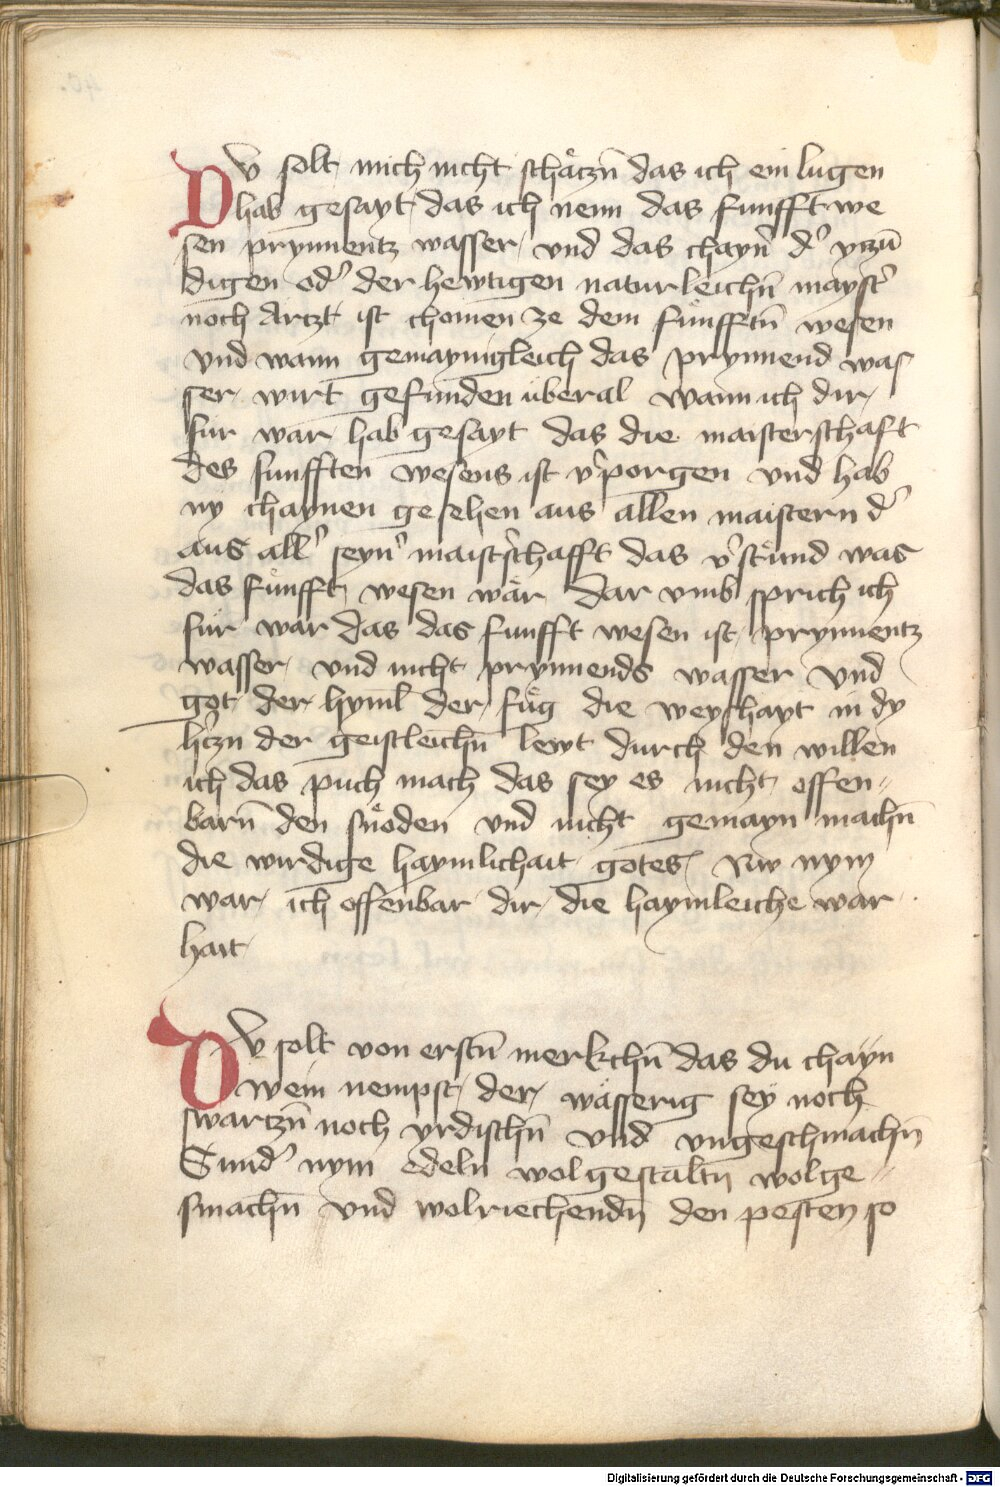 Dv solt mich nicht schaͤczn̄ das ich ein lugen
hab gesayt das ich nenn das funfft we
sen prynnentz wasser vnd das chayn̉ d̉ yczū
digen od̉ der hewtigen naturleichn̄ mayst̉
noch Arczt ist chomen ze dem funfftn̄ wesen
vnd wann gemaynigleich das prynnend was
ser wirt gefunden uberal wann ich dir
fur war hab gesayt das die maisterschaft
des funfften wesens ist v̉porgen vnd hab
ny chaynen gesehen aus allen maistern d̉
aus all̉ seyn̉ maist̉schafft das v̉stuͤnd was
das fuͤnfft wesen waͤr dar vmb sprich ich
fur war das das funfft wesen ist prynnentz
wasser vnd nicht prynnends wasser vnd
got der hyml der fuͤg die weyshayt in dy
h̉czn der geistleichn̄ lewt durch den willen
ich das puch mach das sey es nicht offen„
barn̄ den snoͤden vnd nicht gemayn machn̄
die wirdige haymlichait gotes Nw nym
war ich offenbar dir die haymleiche war
hait

Dv solt von erstn̄ merkchn̄ das du chayn
wein nempst der waͤsserig sey noch
swarczn̄ noch yrdischn̄ vnd vngeschmachn̄
Sund̉ nym edeln wolgestaltn̄ wolge„
smachn̄ vnd wolriechendn̄ den pesten so

Digitalisierung gefördert durch die Deutsche Forschungsgemeinschaft - DFG